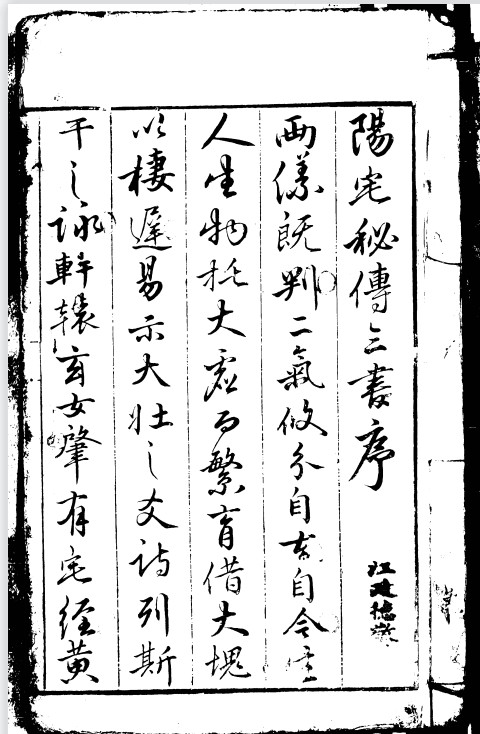 陽宅秘傳三書序
兩儀既判二氣攸分自古自今
人生物托大虛而繁育借大塊
以棲遲易示大壯之爻詩列斯
干之詠軒轅玄女肇有宅經黃